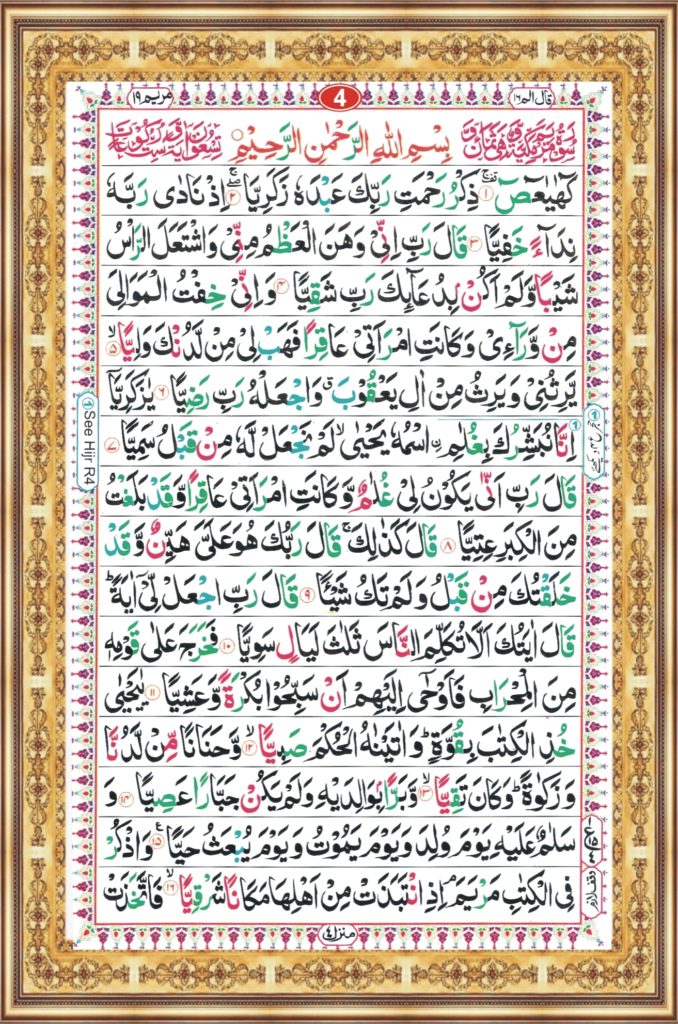 قال الم ١٦
4
مريم ١٩
سورة مريم مكية وهي ثمان و
بِسْمِ اللهِ الرَّحْمٰنِ الرَّحِيْمِ
تسعون اية وست ركوعات
كٓهٰيٰعٓصٓ ۚ ۱ ذِكْرُ رَحْمَتِ رَبِّكَ عَبْدَهٗ زَكَرِيَّا ۖ ۲ اِذْ نَادٰى رَبَّهٗ
نِدَآءً خَفِيًّا ۳ قَالَ رَبِّ اِنِّيْ وَهَنَ الْعَظْمُ مِنِّيْ وَاشْتَعَلَ الرَّاْسُ
شَيْبًا وَّلَمْ اَكُنْۢ بِدُعَآئِكَ رَبِّ شَقِيًّا ۴ وَاِنِّيْ خِفْتُ الْمَوَالِيَ
مِنْ وَّرَآءِيْ وَكَانَتِ امْرَاَتِيْ عَاقِرًا فَهَبْ لِيْ مِنْ لَّدُنْكَ وَلِيًّا ۙ ۵
يَّرِثُنِيْ وَيَرِثُ مِنْ اٰلِ يَعْقُوْبَ ۖ وَاجْعَلْهُ رَبِّ رَضِيًّا ۶ يٰزَكَرِيَّآ
اِنَّا نُبَشِّرُكَ بِغُلٰمِ ِۨاسْمُهٗ يَحْيٰى ۙ لَمْ نَجْعَلْ لَّهٗ مِنْ قَبْلُ سَمِيًّا ۷
قَالَ رَبِّ اَنّٰى يَكُوْنُ لِيْ غُلٰمٌ وَّكَانَتِ امْرَاَتِيْ عَاقِرًا وَّقَدْ بَلَغْتُ
مِنَ الْكِبَرِ عِتِيًّا ۸ قَالَ كَذٰلِكَ ۚ قَالَ رَبُّكَ هُوَ عَلَيَّ هَيِّنٌ وَّقَدْ
خَلَقْتُكَ مِنْ قَبْلُ وَلَمْ تَكُ شَيْـًٔا ۹ قَالَ رَبِّ اجْعَلْ لِّيْٓ اٰيَةً ؕ
قَالَ اٰيَتُكَ اَلَّا تُكَلِّمَ النَّاسَ ثَلٰثَ لَيَالٍ سَوِيًّا ۱۰ فَخَرَجَ عَلٰى قَوْمِهٖ
مِنَ الْمِحْرَابِ فَاَوْحٰٓى اِلَيْهِمْ اَنْ سَبِّحُوْا بُكْرَةً وَّعَشِيًّا ۱۱ يٰيَحْيٰى
خُذِ الْكِتٰبَ بِقُوَّةٍ ؕ وَاٰتَيْنٰهُ الْحُكْمَ صَبِيًّا ۙ ۱۲ وَّحَنَانًا مِّنْ لَّدُنَّا
وَزَكٰوةً ؕ وَكَانَ تَقِيًّا ۙ ۱۳ وَّبَرًّۢا بِوَالِدَيْهِ وَلَمْ يَكُنْ جَبَّارًا عَصِيًّا ۱۴ وَ
سَلٰمٌ عَلَيْهِ يَوْمَ وُلِدَ وَيَوْمَ يَمُوْتُ وَيَوْمَ يُبْعَثُ حَيًّا ۱۵ وَاذْكُرْ
فِي الْكِتٰبِ مَرْيَمَ ۘ اِذِ انْتَبَذَتْ مِنْ اَهْلِهَا مَكَانًا شَرْقِيًّا ۙ ۱۶ فَاتَّخَذَتْ
وقف لازم
See Hijr R4
منزل ٤